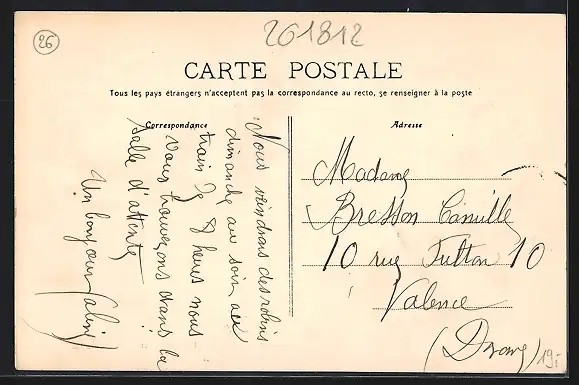 26
261812
CARTE POSTALE
Tous les pays étrangers n'acceptent pas la correspondance au recto, se renseigner à la poste
Correspondance
Adresse
Nous viendrons
dimanche au soir
train 8 heures nous
vous trouverons dans la
salle d'attente
Un bonjour
Madame
Bresson Camille
10 rue Fulton 10
Valence
(Drome)